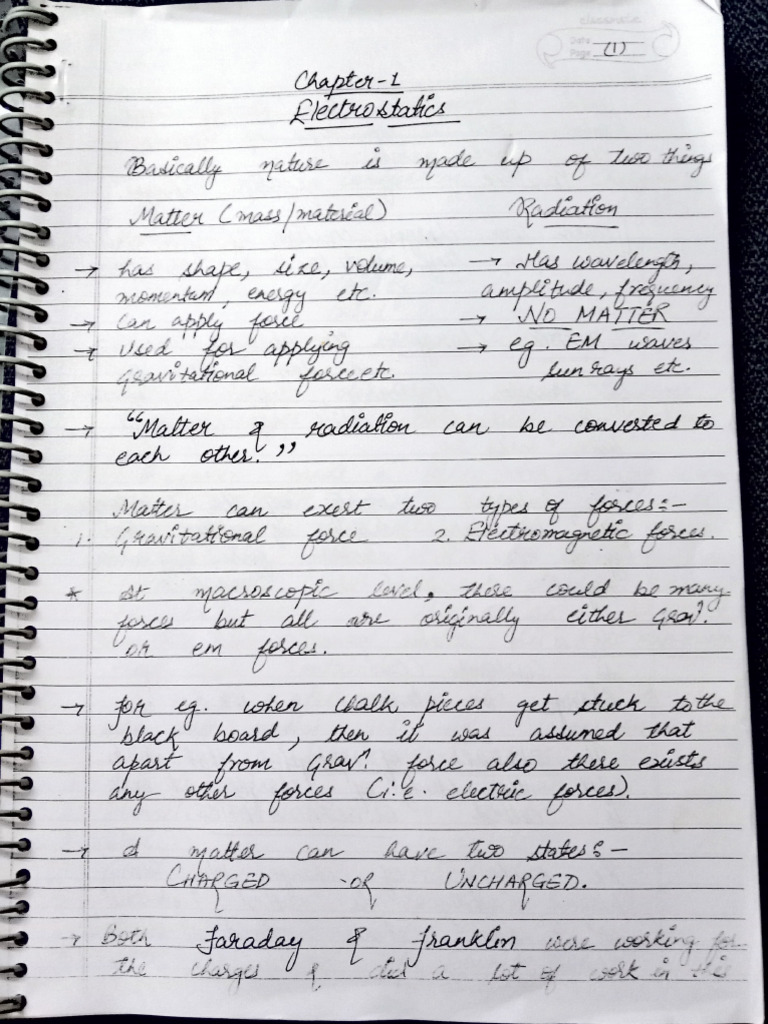 classmate
Date
Page (1)
Chapter-1
Electrostatics
Basically nature is made up of two things
Matter (mass/material) Radiation
→ has shape, size, volume, → Has wavelength,
momentum, energy etc. amplitude, frequency
→ Can apply force → NO MATTER
→ Used for applying → eg. EM waves
gravitational force etc. sun rays etc.
→ "Matter & radiation can be converted to
each other."
Matter can exert two types of forces:-
1. Gravitational force 2. Electromagnetic forces.
* At macroscopic level, there could be many
forces but all are originally either Grav.
or em forces.
→ for eg. when chalk pieces get stuck to the
black board, then it was assumed that
apart from Gravn. force also there exists
any other forces (i.e. electric forces).
→ A matter can have two states:-
CHARGED or UNCHARGED.
→ Both Faraday & Franklin were working for
the charges & did a lot of work in this